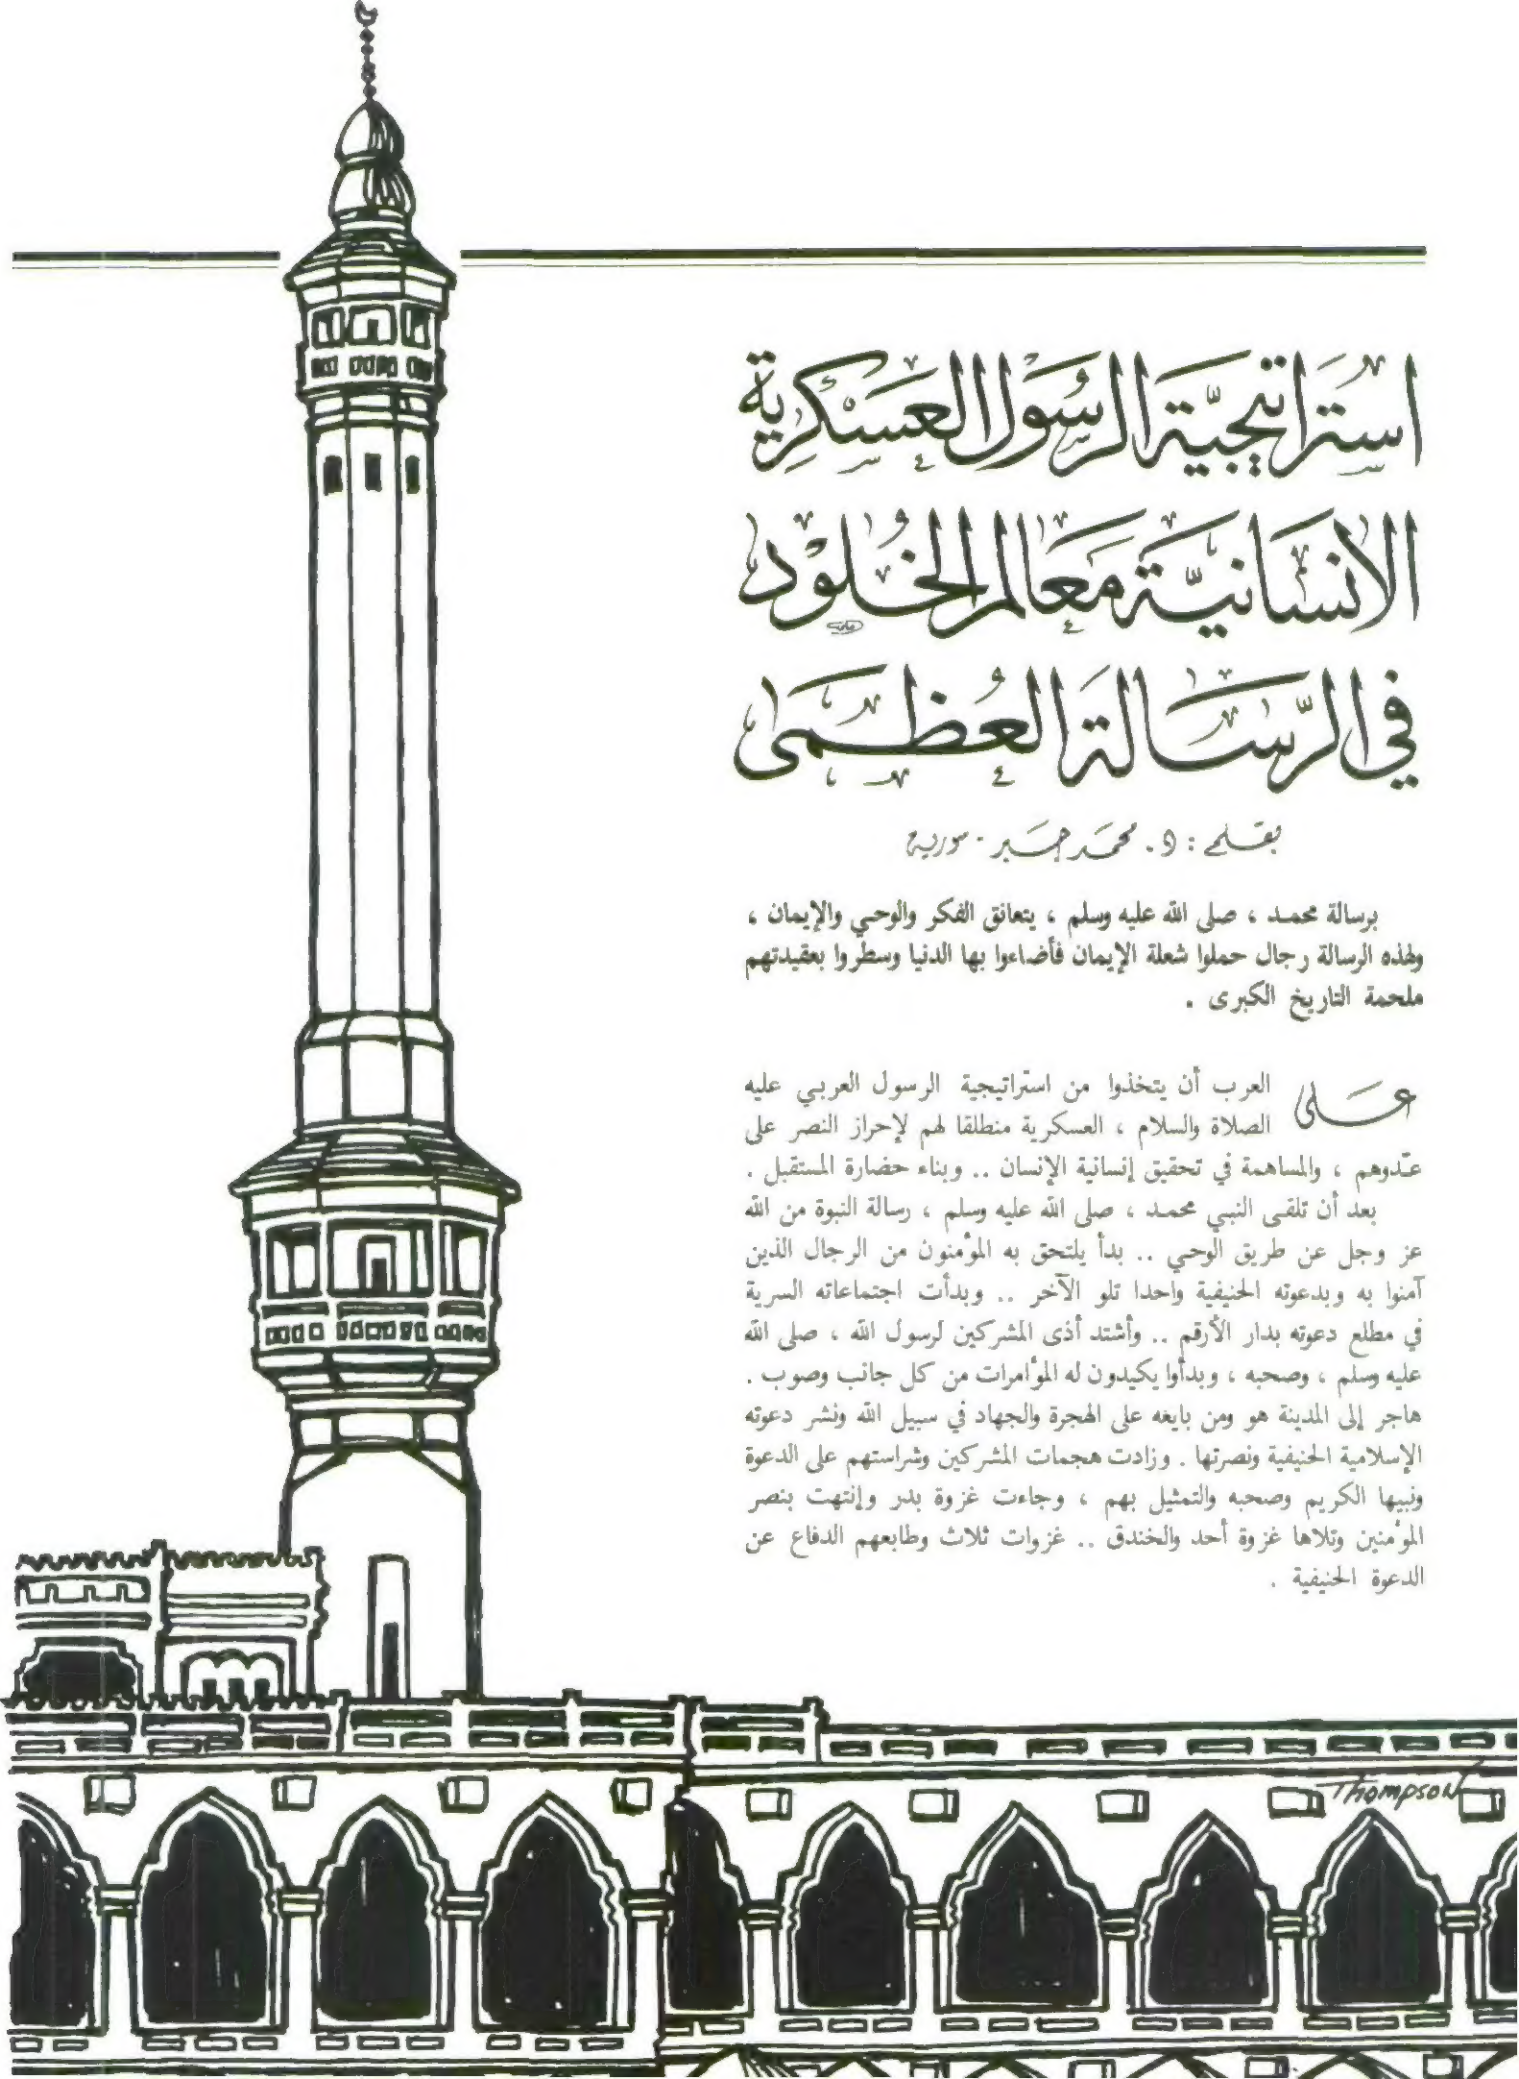 استراتيجيَّة الرسُول العَسْكرِية
الانسَانيَّة مَعَالم الخُلود
في الرّسَالة العُظمَى
بقلم : د. محمَد جَبر - سورية
برسالة محمـد ، صلى الله عليه وسلم ، يتعانق الفكر والوحي والإيمان ،
ولهذه الرسالة رجال حملوا شعلة الإيمان فأضاءوا بها الدنيا وسطروا بعقيدتهم
ملحمة التاريخ الكبرى .
على العرب أن يتخذوا من استراتيجية الرسول العربي عليه
الصلاة والسلام ، العسكرية منطلقا لهم لإحراز النصر على
عـدوهم ، والمساهمة في تحقيق إنسانية الإنسان .. وبناء حضارة المستقبل .
بعد أن تلقـى النبي محمـد ، صلى الله عليه وسلم ، رسالة النبوة من الله
عز وجل عن طريق الوحي .. بدأ يلتحق به المؤمنون من الرجال الذين
آمنوا به وبدعوته الحنيفية واحدا تلو الآخر .. وبدأت اجتماعاته السرية
في مطلع دعوته بدار الأرقم .. وأشتد أذى المشركين لرسول الله ، صلى الله
عليه وسلم ، وصحبه ، وبدأوا يكيدون له المؤامرات من كل جانب وصوب .
هاجر إلى المدينة هو ومن بايعه على الهجرة والجهاد في سبيل الله ونشر دعوته
الإسلامية الحنيفية ونصرتها . وزادت هجمات المشركين وشراستهم على الدعوة
ونبيها الكريم وصحبه والتمثيل بهم ، وجاءت غزوة بدر وإنتهت بنصر
المؤمنين وتلاها غزوة أحد والخندق .. غزوات ثلاث وطابعهم الدفاع عن
الدعوة الحنيفية .
Thompson